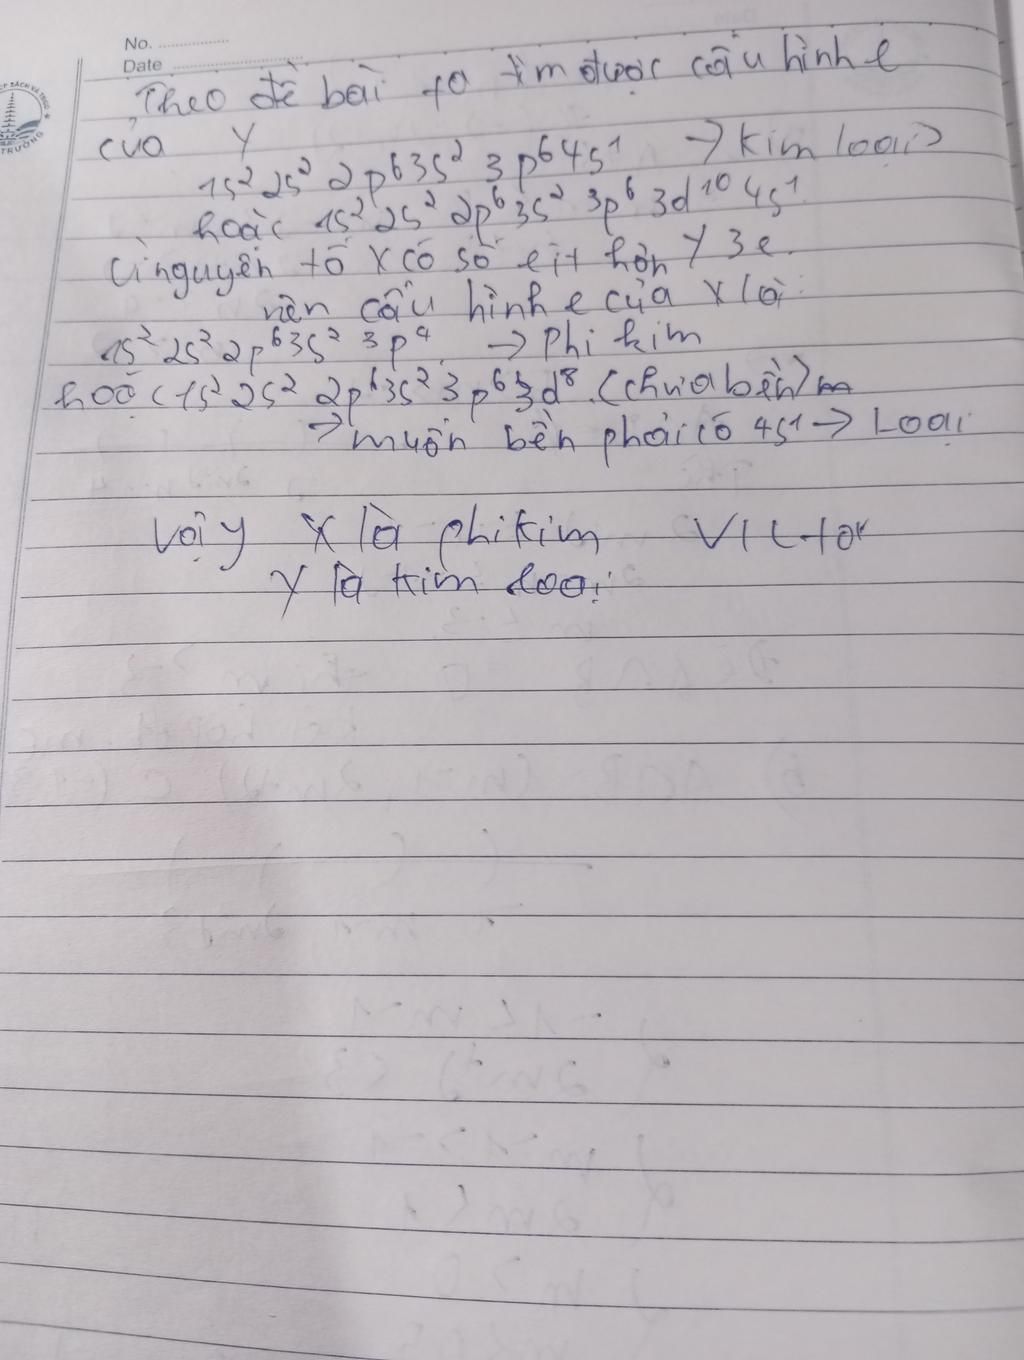 No. ...................
Date ..............................
Theo đề bài ta tìm được cấu hình e
của Y
1s² 2s² 2p⁶3s² 3p⁶4s¹ → Kim loại
hoặc 1s² 2s² 2p⁶3s² 3p⁶ 3d¹⁰ 4s¹
Vì nguyên tố X có số e ít hơn Y 3e.
nên cấu hình e của X là:
1s² 2s² 2p⁶3s² 3p⁴. → Phi kim
hoặc 1s² 2s² 2p⁶3s² 3p⁶ 3d⁸. (chưa bền)
→ muốn bền phải có 4s¹ → Loại
Vậy X là phi kim Victor
Y là kim loại
TRƯỜNG